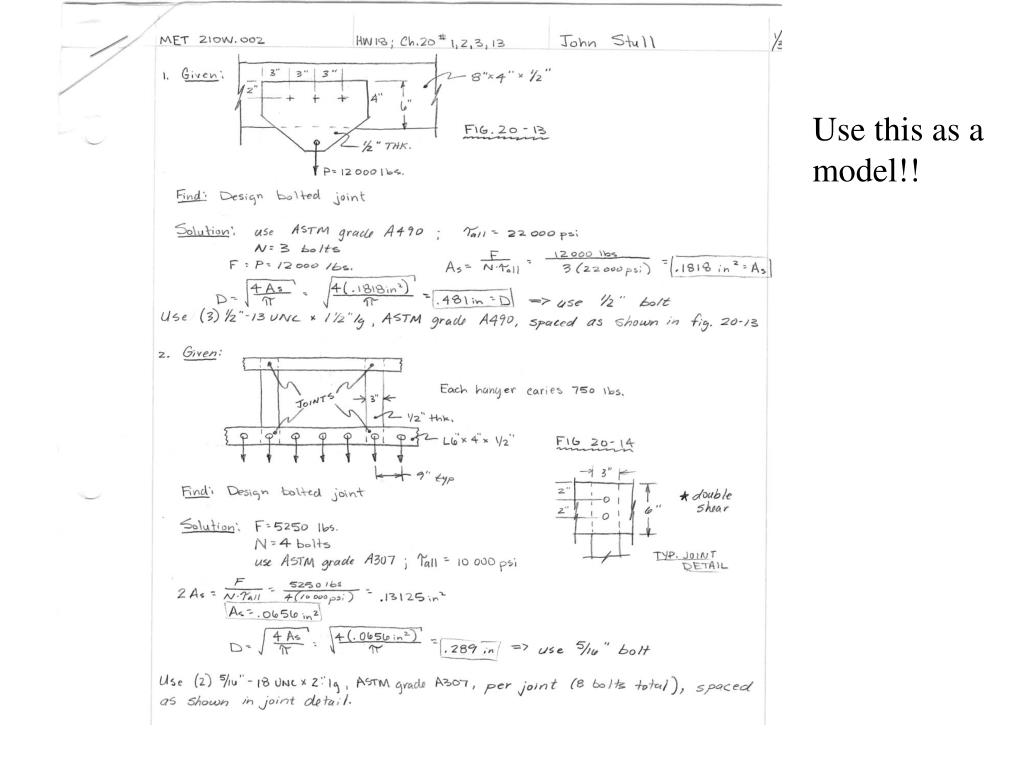 MET 210W.002 HW18; Ch.20 # 1,2,3,13 John Stull 1/3
1. Given:
3" 3" 3"
8"x4"x 1/2"
2"
4"
6"
FIG. 20-13
1/2" THK.
P=12000 lbs.
Find: Design bolted joint
Solution: use ASTM grade A490 ; τall = 22000 psi
N=3 bolts
F=P=12000 lbs. As = F/N·τall = 12000 lbs/3(22000psi) = .1818 in²=As
D=√4As/π = √4(.1818in²)/π = .481in=D => use 1/2" bolt
Use (3) 1/2"-13 UNC x 1 1/2" lg, ASTM grade A490, spaced as shown in fig. 20-13
2. Given:
Each hanger caries 750 lbs.
JOINTS
3"
1/2" thk.
L6"x4"x 1/2"
9" typ
FIG 20-14
3"
2"
2"
6"
* double
shear
TYP. JOINT
DETAIL
Find: Design bolted joint
Solution: F=5250 lbs.
N=4 bolts
use ASTM grade A307 ; τall = 10000 psi
2As = F/N·τall = 5250 lbs/4(10000psi) = .13125in²
As=.0656in²
D=√4As/π = √4(.0656in²)/π = .289 in => use 5/16" bolt
Use (2) 5/16"-18 UNC x 2" lg, ASTM grade A307, per joint (8 bolts total), spaced
as shown in joint detail.
Use this as a
model!!